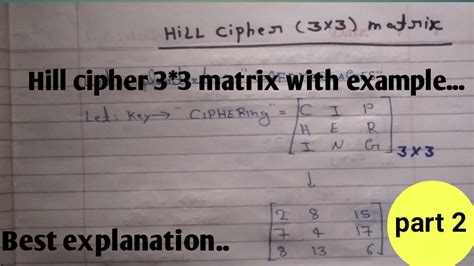 HiLL Cipher (3×3) matrix
Hill cipher 3*3 matrix with example...
Let: Key → "CIPHERing" = [C I P
H E R
I N G] 3×3
↓
[2 8 15
7 4 17
8 13 6]
part 2
Best explanation..